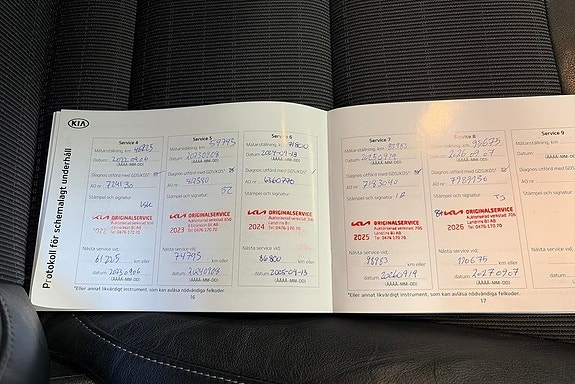 KIA
Protokoll för schemalagt underhåll
Service 4
Mätarställning, km
Datum 2022.09.06
(ÅÅÅÅ-MM-DD)
Diagnos utförd med GDS/KDS*
AO nr
Stämpel och signatur:
KIA ORIGINALSERVICE
2022
Auktoriserad verkstad
Tel 0476 170 70
Nästa service vid:
61225 km eller
datum 2023.09.06
(ÅÅÅÅ-MM-DD)
Service 5
Mätarställning, km 59795
Datum 20230908
(ÅÅÅÅ-MM-DD)
Diagnos utförd med GDS/KDS*
AO nr
Stämpel och signatur:
KIA ORIGINALSERVICE
2023
Auktoriserad verkstad
Tel 0476 170 70
Nästa service vid:
74795 km eller
datum 20240908
(ÅÅÅÅ-MM-DD)
Service 6
Mätarställning, km 71800
Datum 2024-09-13
(ÅÅÅÅ-MM-DD)
Diagnos utförd med GDS/KDS*
AO nr
Stämpel och signatur:
KIA ORIGINALSERVICE
2024
Auktoriserad verkstad 706
Landrins Bil AB
Tel 0476 170 70
Nästa service vid:
86800 km eller
datum
(ÅÅÅÅ-MM-DD)
*Eller annat likvärdigt instrument, som kan avläsa nödvändiga felkoder.
16
Service 7
Mätarställning, km 83983
Datum 20250919
(ÅÅÅÅ-MM-DD)
Diagnos utförd med GDS/KDS*
AO nr 7183040
Stämpel och signatur:
KIA ORIGINALSERVICE
2025
Auktoriserad verkstad 706
Landrins Bil AB
Tel 0476 170 70
Nästa service vid:
98983 km eller
datum 20260919
(ÅÅÅÅ-MM-DD)
Service 8
Mätarställning, km 95675
Datum 2026.09.07
(ÅÅÅÅ-MM-DD)
Diagnos utförd med GDS/KDS*
AO nr
Stämpel och signatur:
KIA ORIGINALSERVICE
2026
Auktoriserad verkstad 706
Landrins Bil AB
Tel 0476 170 70
Nästa service vid:
110675 km eller
datum 2027.0907
(ÅÅÅÅ-MM-DD)
Service 9
Mätarställning, km
Datum
(ÅÅÅÅ-MM-DD)
Diagnos utförd med
AO nr
Stämpel och signatur:
Nästa service vid:
datum
(ÅÅÅÅ-MM-DD)
*Eller annat likvärdigt instrument, som kan avläsa nödvändiga felkoder.
17